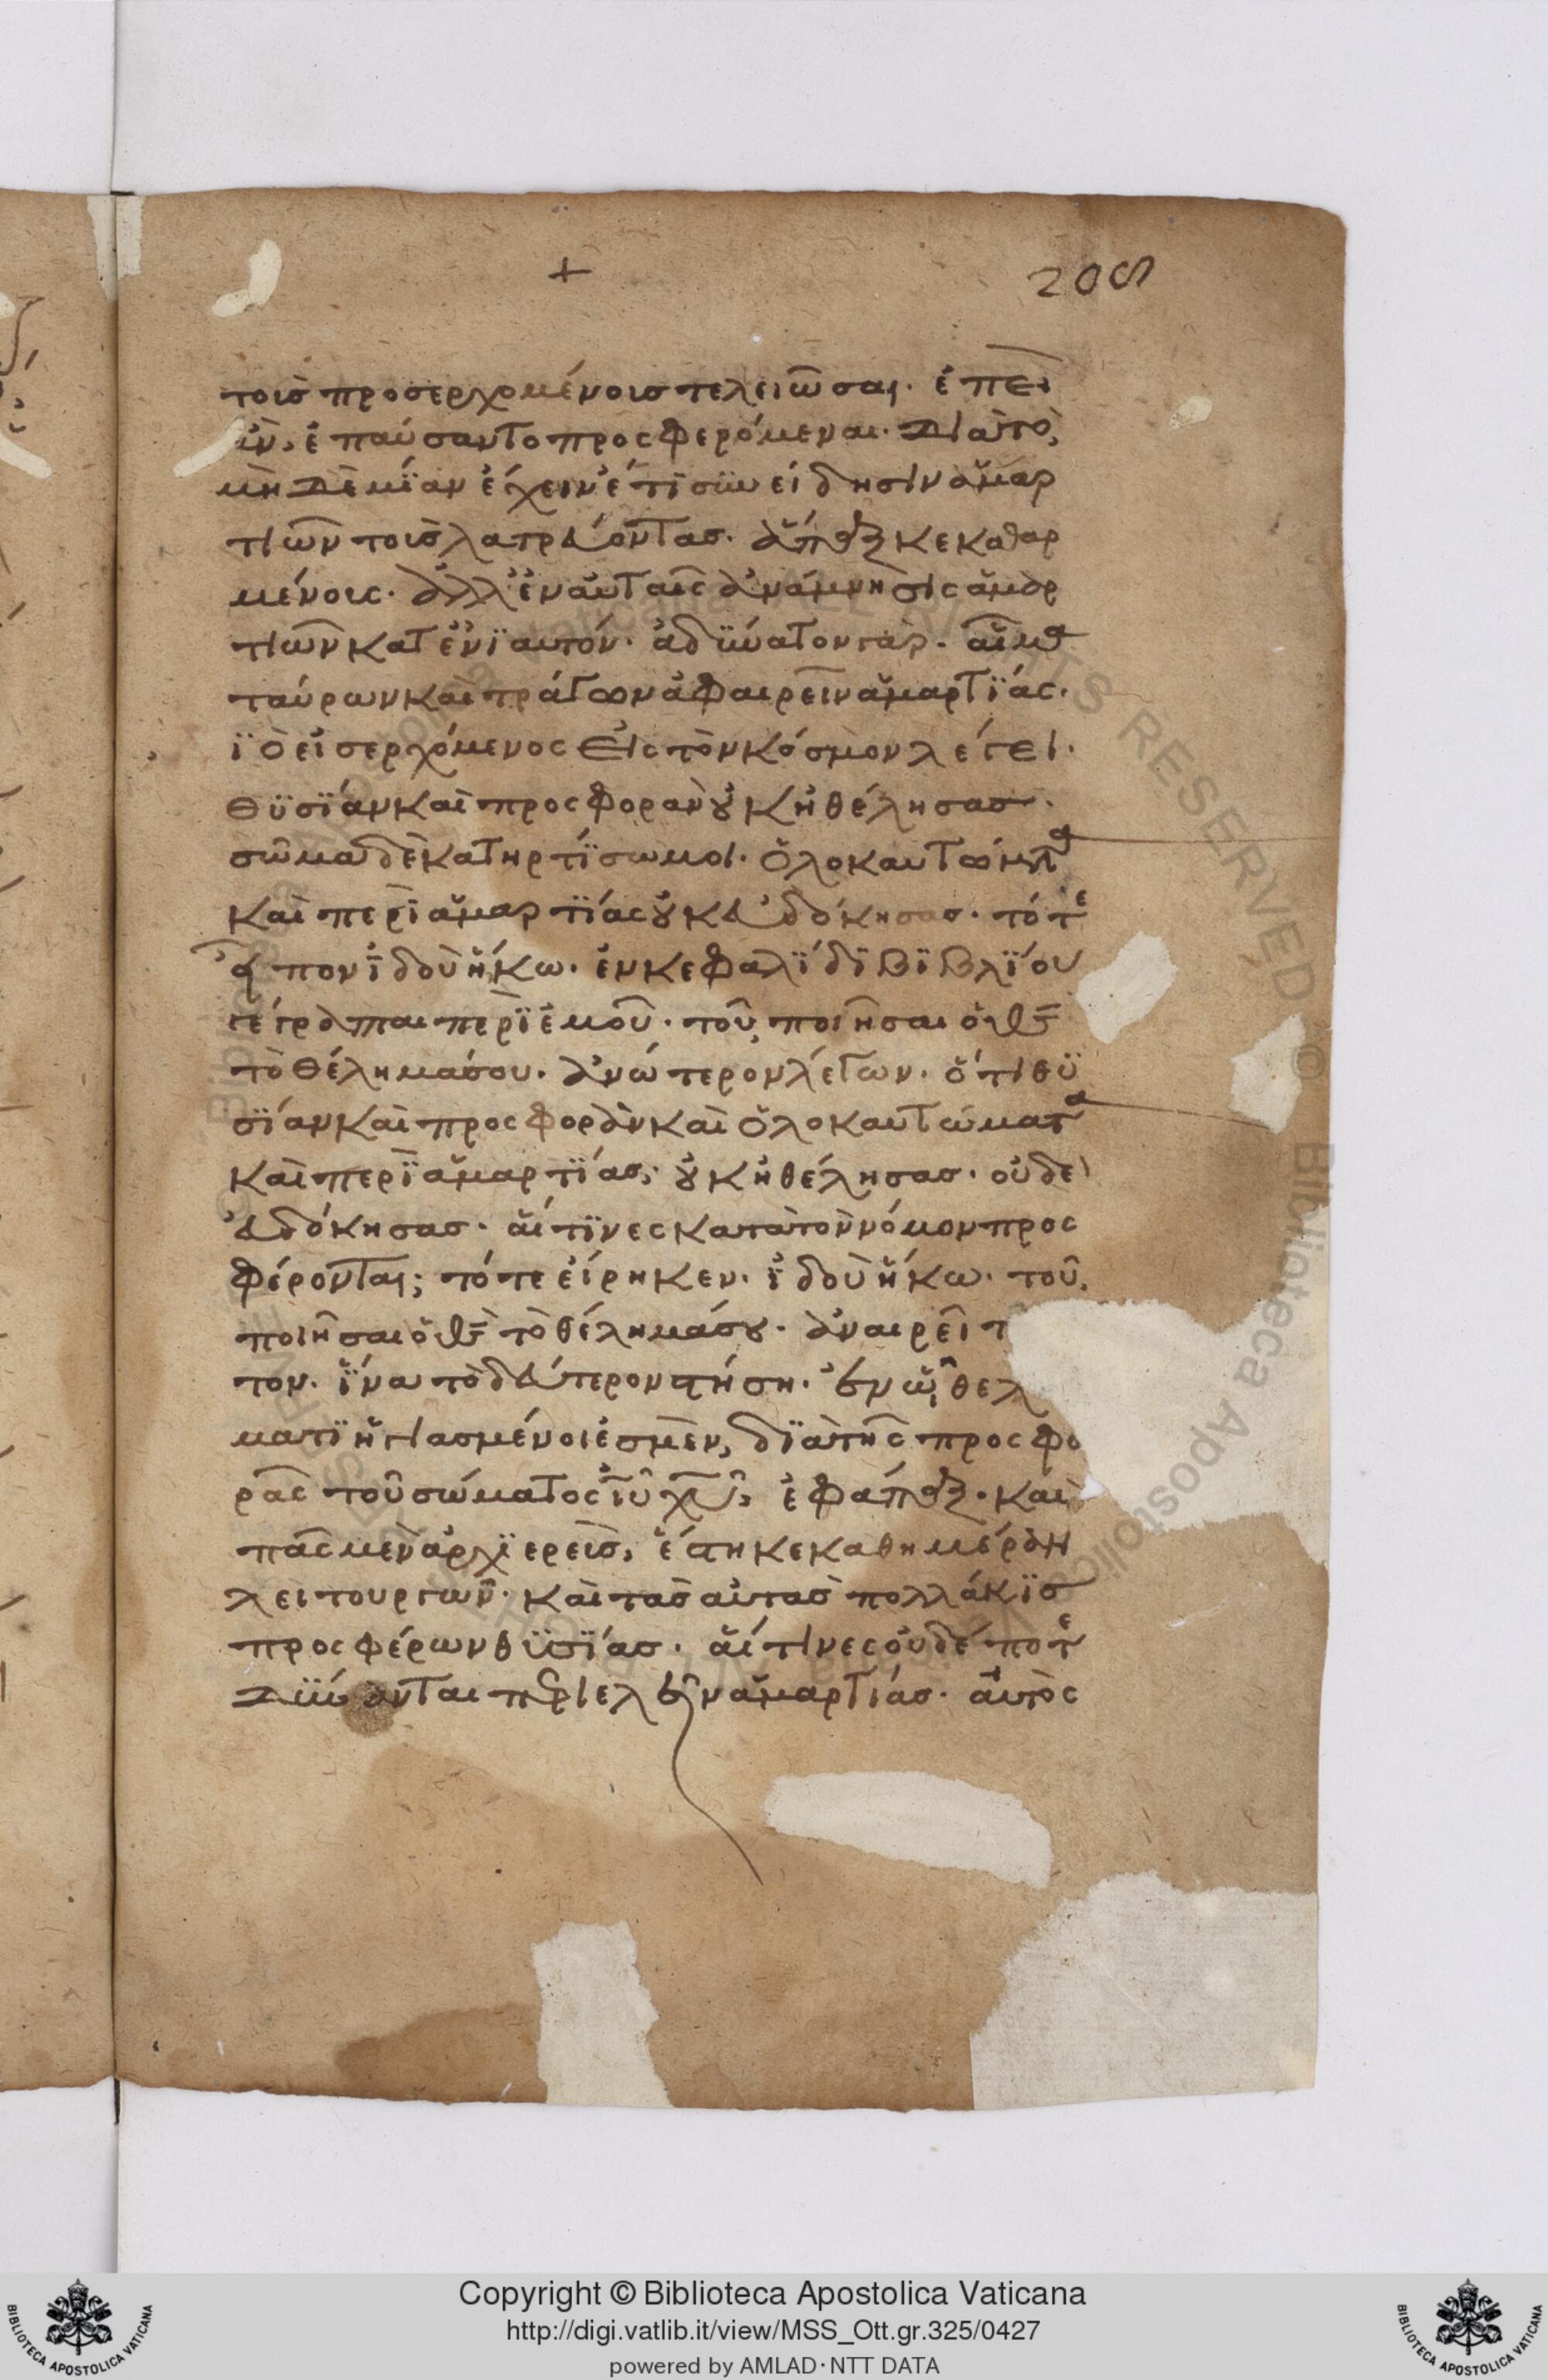 +
205
τοις προσερχομένοις τελειῶσαι. ἐπεὶ
ἂν, ἐπαύσαντο προσφερόμεναι. διὰ τὸ,
μὴδὲμΐαν ἔχειν ἔτϊ συνείδησιν ἁμαρ
τιῶν τοὺς λατρεύοντας. ἅπαξ κεκαθαρ
μένοις. ἀλλ' ἐν αὐταῖς ἀνάμνησις ἁμαρ
τιῶν κατ ἐνϊαυτόν. ἀδϋνατον γὰρ. αἷμα
ταύρων καὶ τράγων ἀφαιρεῖν ἁμαρτϊάς.
ϊὸ εἰσερχόμενος εἰς τὸν κόσμον λέγει.
θϋσϊαν καὶ προσφορὰν οὐκ ἠθέλησας.
σῶμα δὲ κατηρτΐσω μοι. ὁλοκαυτώματα
καὶ περὶ ἁμαρτϊάς οὐκ εὐδόκησας. τότε
εἶπον ϊδοὺ ἥκω. ἐν κεφαλϊδϊ βϊβλΐου
γέγραπαι περϊ ἐμοῦ. τοῦ, ποιῆσαι ὁ θς
τὸ θέλημά σου. ἀνώτερον λέγων. ὅτι θϋ
σΐαν καὶ προσφορὰν καὶ ὁλοκαυτώματα
καὶ περϊ ἁμαρτΐας, οὐκ ἠθέλησας. οὐδὲ
εὐδόκησας. αἵτϊνες κατὰ τὸν νόμον προσ
φέρονται; τότε εἴρηκεν. ϊδοὺ ἥκω. τοῦ,
ποιῆσαι ὁ θς τὸ θέλημά σου. ἀναιρεῖ τ
τον. ἵνα τὸ δεύτερον στήση. ἐν ὧ θελ
ματϊ ἡγιασμένοι ἐσμὲν, δϊὰ τῆς προσφο
ρᾶς τοῦ σώματος ιυ χυ, ἐφάπαξ. καὶ
πᾶς μὲν ἀρχϊερεῖς, ἕστηκε καθημέραν
λειτουργῶν. καὶ τὰς αὐτὰς πολλάκϊς
προσφέρων θϋσΐας. αἵτινες οὐδέποτε
δϋνανται περιελεῖν ἁμαρτιάς. αὐτὸς
Copyright © Biblioteca Apostolica Vaticana
http://digi.vatlib.it/view/MSS_Ott.gr.325/0427
powered by AMLAD·NTT DATA